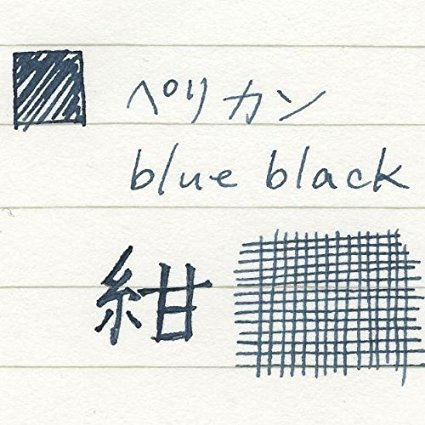 ペリカン
blue black
紺